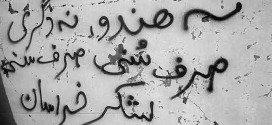 نه هندو، نه دگری
صرف سُنی صرف سنی
لشکر خراسان